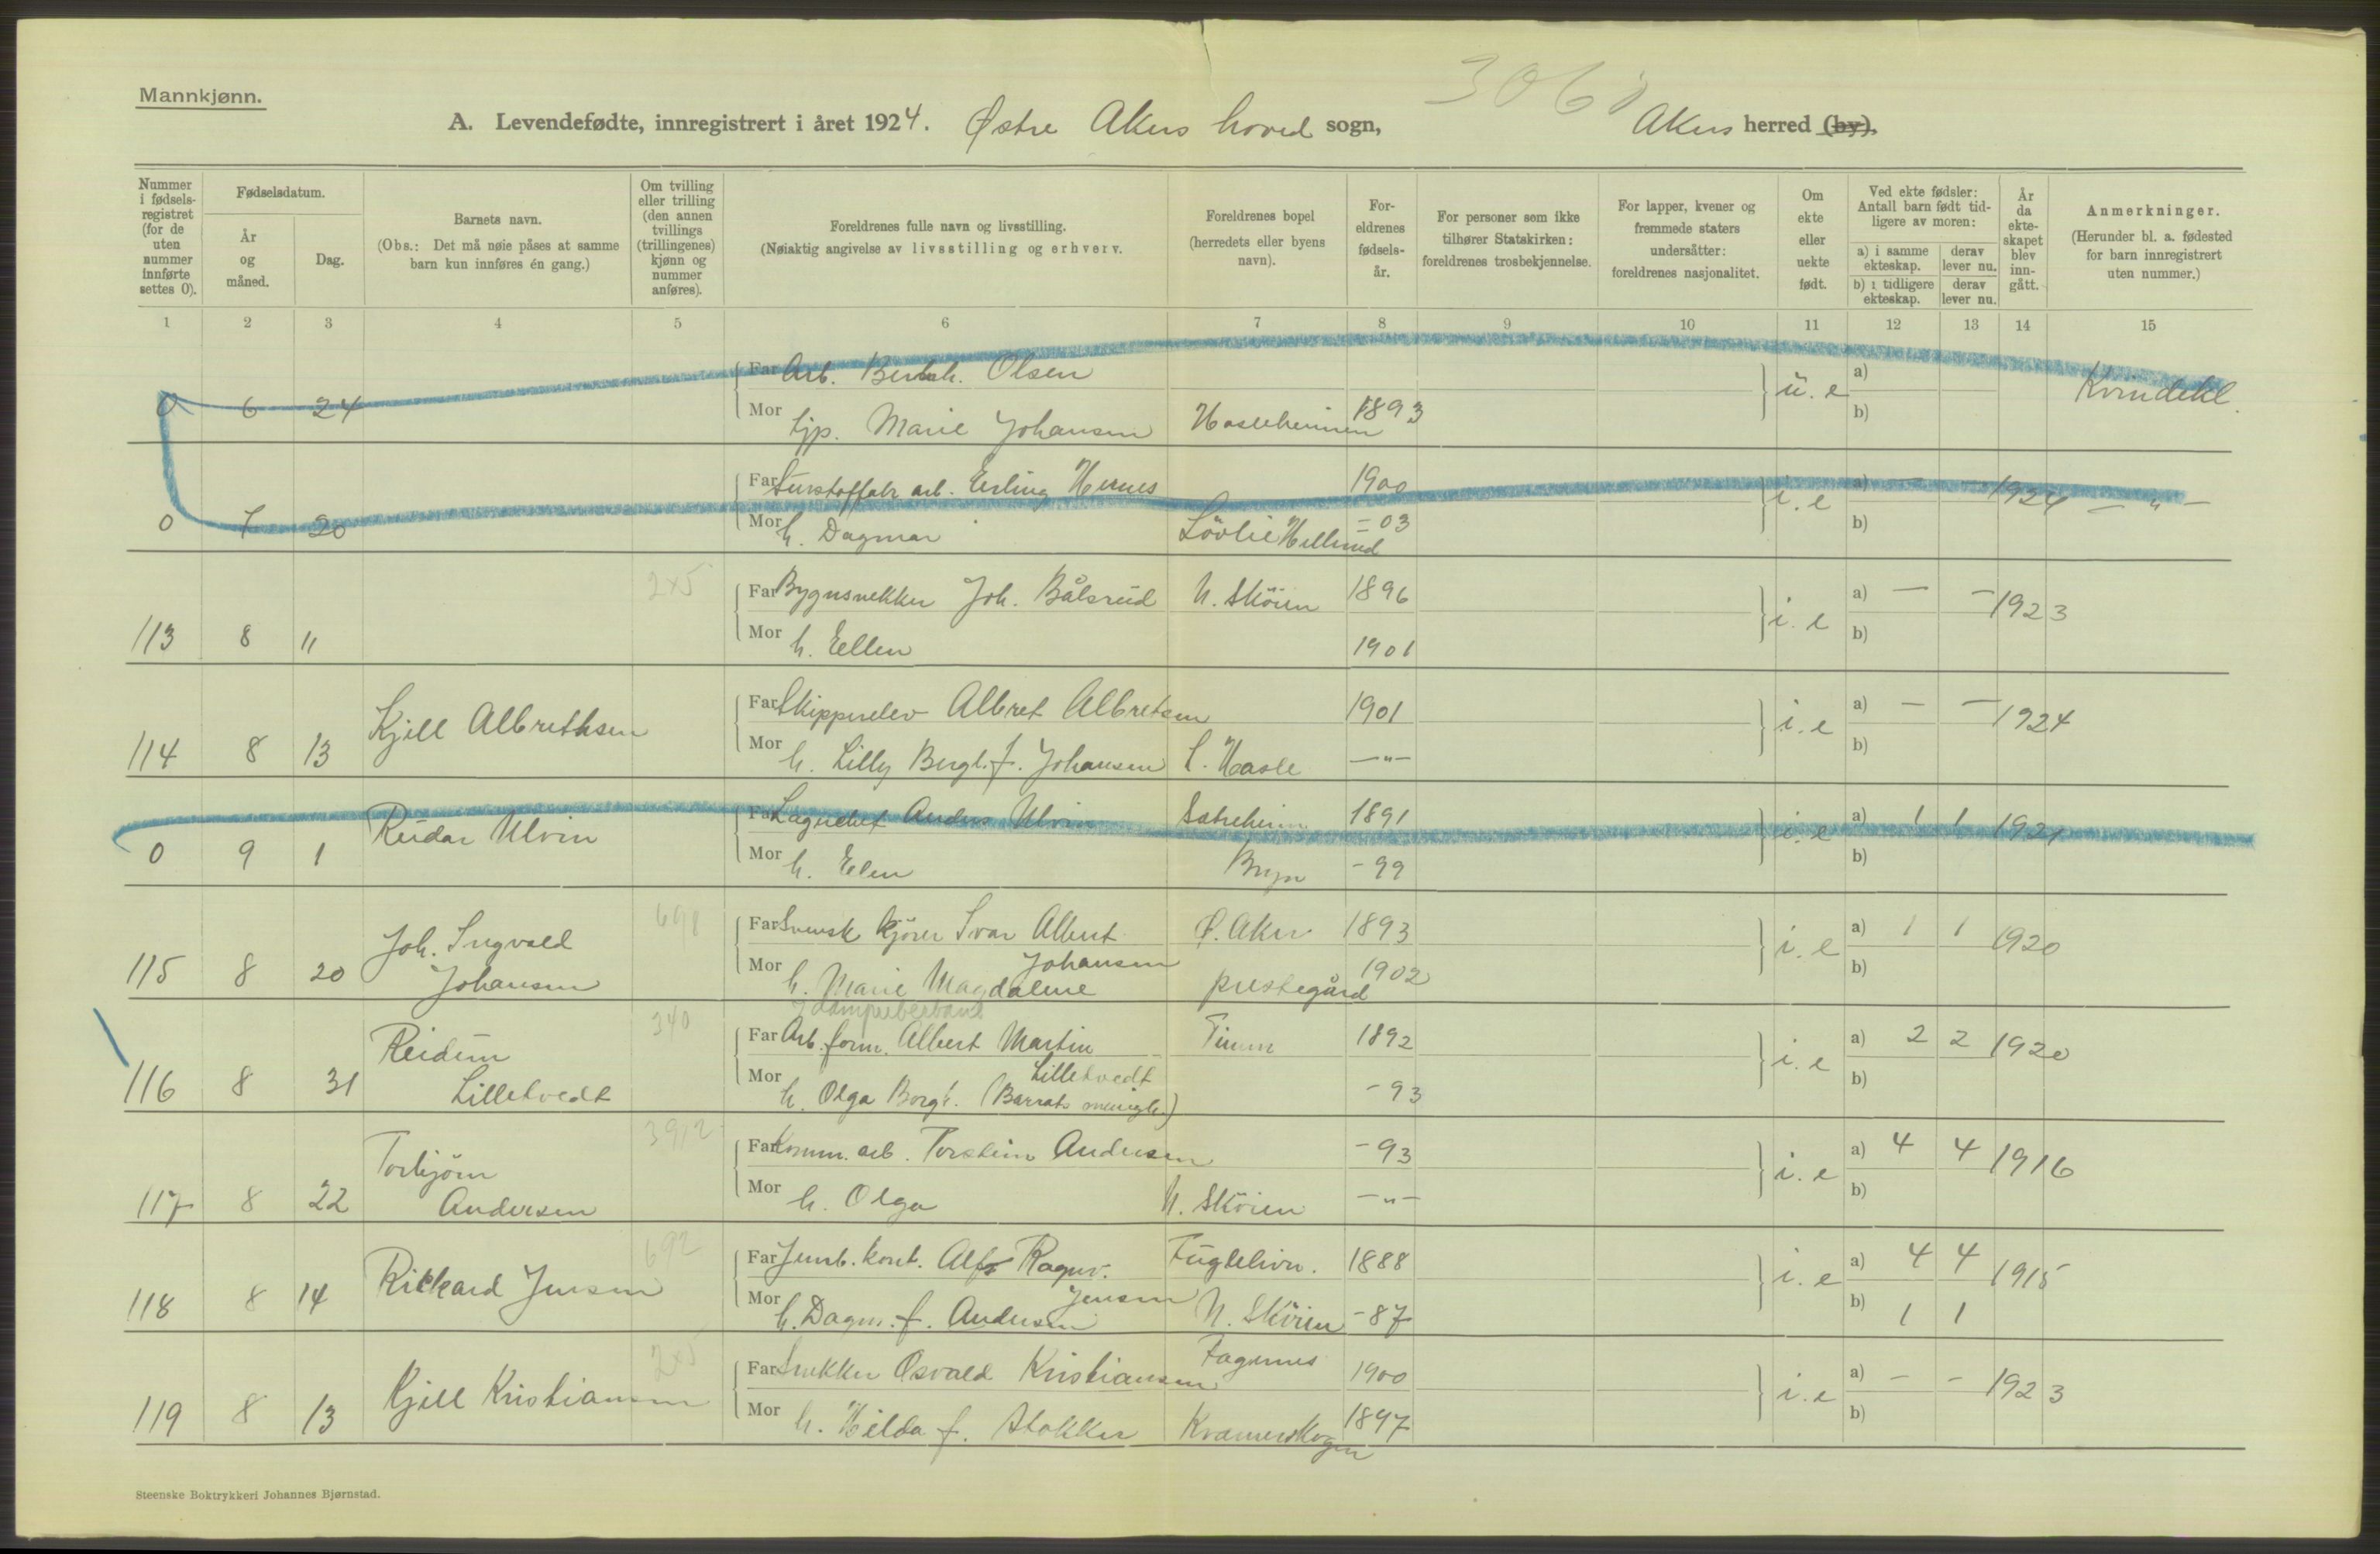 Mannkjønn.
3060
A. Levendefødte, innregistrert i året 1924. Østre Akers hoved sogn, Akers herred (by).
Nummer i fødselsregistret (for de uten nummer innførte settes 0).
Fødselsdatum.
År og måned.
Dag.
Barnets navn.
(Obs.: Det må nøie påses at samme barn kun innføres én gang.)
Om tvilling eller trilling (den annen tvillings (trillingenes) kjønn og nummer anføres).
Foreldrenes fulle navn og livsstilling.
(Nøiaktig angivelse av livsstilling og erhverv.
Foreldrenes bopel (herredets eller byens navn).
Foreldrenes fødselsår.
For personer som ikke tilhører Statskirken: foreldrenes trosbekjennelse.
For lapper, kvener og fremmede staters undersåtter: foreldrenes nasjonalitet.
Om ekte eller uekte født.
Ved ekte fødsler: Antall barn født tidligere av moren:
a) i samme ekteskap. derav lever nu.
b) i tidligere ekteskap. derav lever nu.
År da ekteskapet blev inngått.
Anmerkninger.
(Herunder bl. a. fødested for barn innregistrert uten nummer.)
1 2 3 4 5 6 7 8 9 10 11 12 13 14 15
Far Arb. Olsen a)
0 6 24 u. e Kvindekl.
Mor tjp. Marie Johansen 1893 b)
Far arb. Erling Hernes 1900 a) — — 1924
0 7 20 i. e — " —
Mor h. Dagmar Lövlie Hellerud - 03 b)
2x5
Far Bygnsnekker Joh. Bålsrud N. Sköien 1896 a) — — 1923
113 8 11 i. e
Mor h. Ellen 1901 b)
Far Skipperelev Albret Albretsen 1901 a) — — 1924
114 8 13 Kjell Albrethsen i. e
Mor h. Lilly Bergl. f. Johansen L. Hasle —"— b)
Far Lagerchef Anders Ulvin Sætreheim 1891 a) 1 1 1921
0 9 1 Reidar Ulvin i. e
Mor h. Elen Bryn - 99 b)
698
Far Svensk kjörer Ivar Albert Ö. Aker 1893 a) 1 1 1920
115 8 20 Joh. Ingvald Johansen i. e
Johansen
Mor h. Marie Magdalene prestegård 1902 b)
340
Far Arb. form. Albert Martin 1892 a) 2 2 1920
116 8 31 Reidun Lilletvedt i. e
Lilletvedt
Mor h. Olga Borgh. (Barrats menigh.) - 93 b)
3912
Far Komm. arb. Torstein Andersen - 93 a) 4 4 1916
117 8 22 Torbjörn Andersen i. e
Mor h. Olga N. Sköien —"— b)
692
Far Jernb. kont. Alf Ragnv. Fuglelivn. 1888 a) 4 4 1915
118 8 14 Rickard Jensen i. e
Jensen
Mor h. Dagm. f. Andersen N. Sköien - 87 b) 1 1
2x5
Far Snekker Osvald Kristiansen Fagernes 1900 a) - - 1923
119 8 13 Kjell Kristiansen i. e
Mor h. Hilda f. Stokker Kramerskogen 1897 b)
Steenske Boktrykkeri Johannes Bjørnstad.